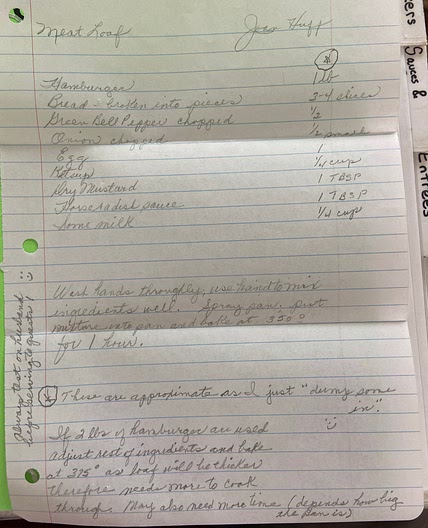 Meat Loaf
Hamburger 1 lb
Bread - broken into pieces 3-4 slices
Green Bell Pepper chopped 1/2
Onion chopped 1/2 small
Egg 1
Ketsup 1/4 cup
Dry Mustard 1 TBSP
Horseradish sauce 1 TBSP
Some milk 1/4 cup
Wash hands throughly, use hand to mix
ingredients well. Spray pan, put
mixture into pan and bake at 350°
for 1 hour.
These are approximate as I just "dump some
in."
If 2 lbs of hamburger are used
adjust rest of ingredients and bake
at 375° as loaf will be thicker
therefore needs more to cook
through. May also need more time (depends how big
the pan is)
Always test on husband
before serving to guests!
Sauces &
Entrées